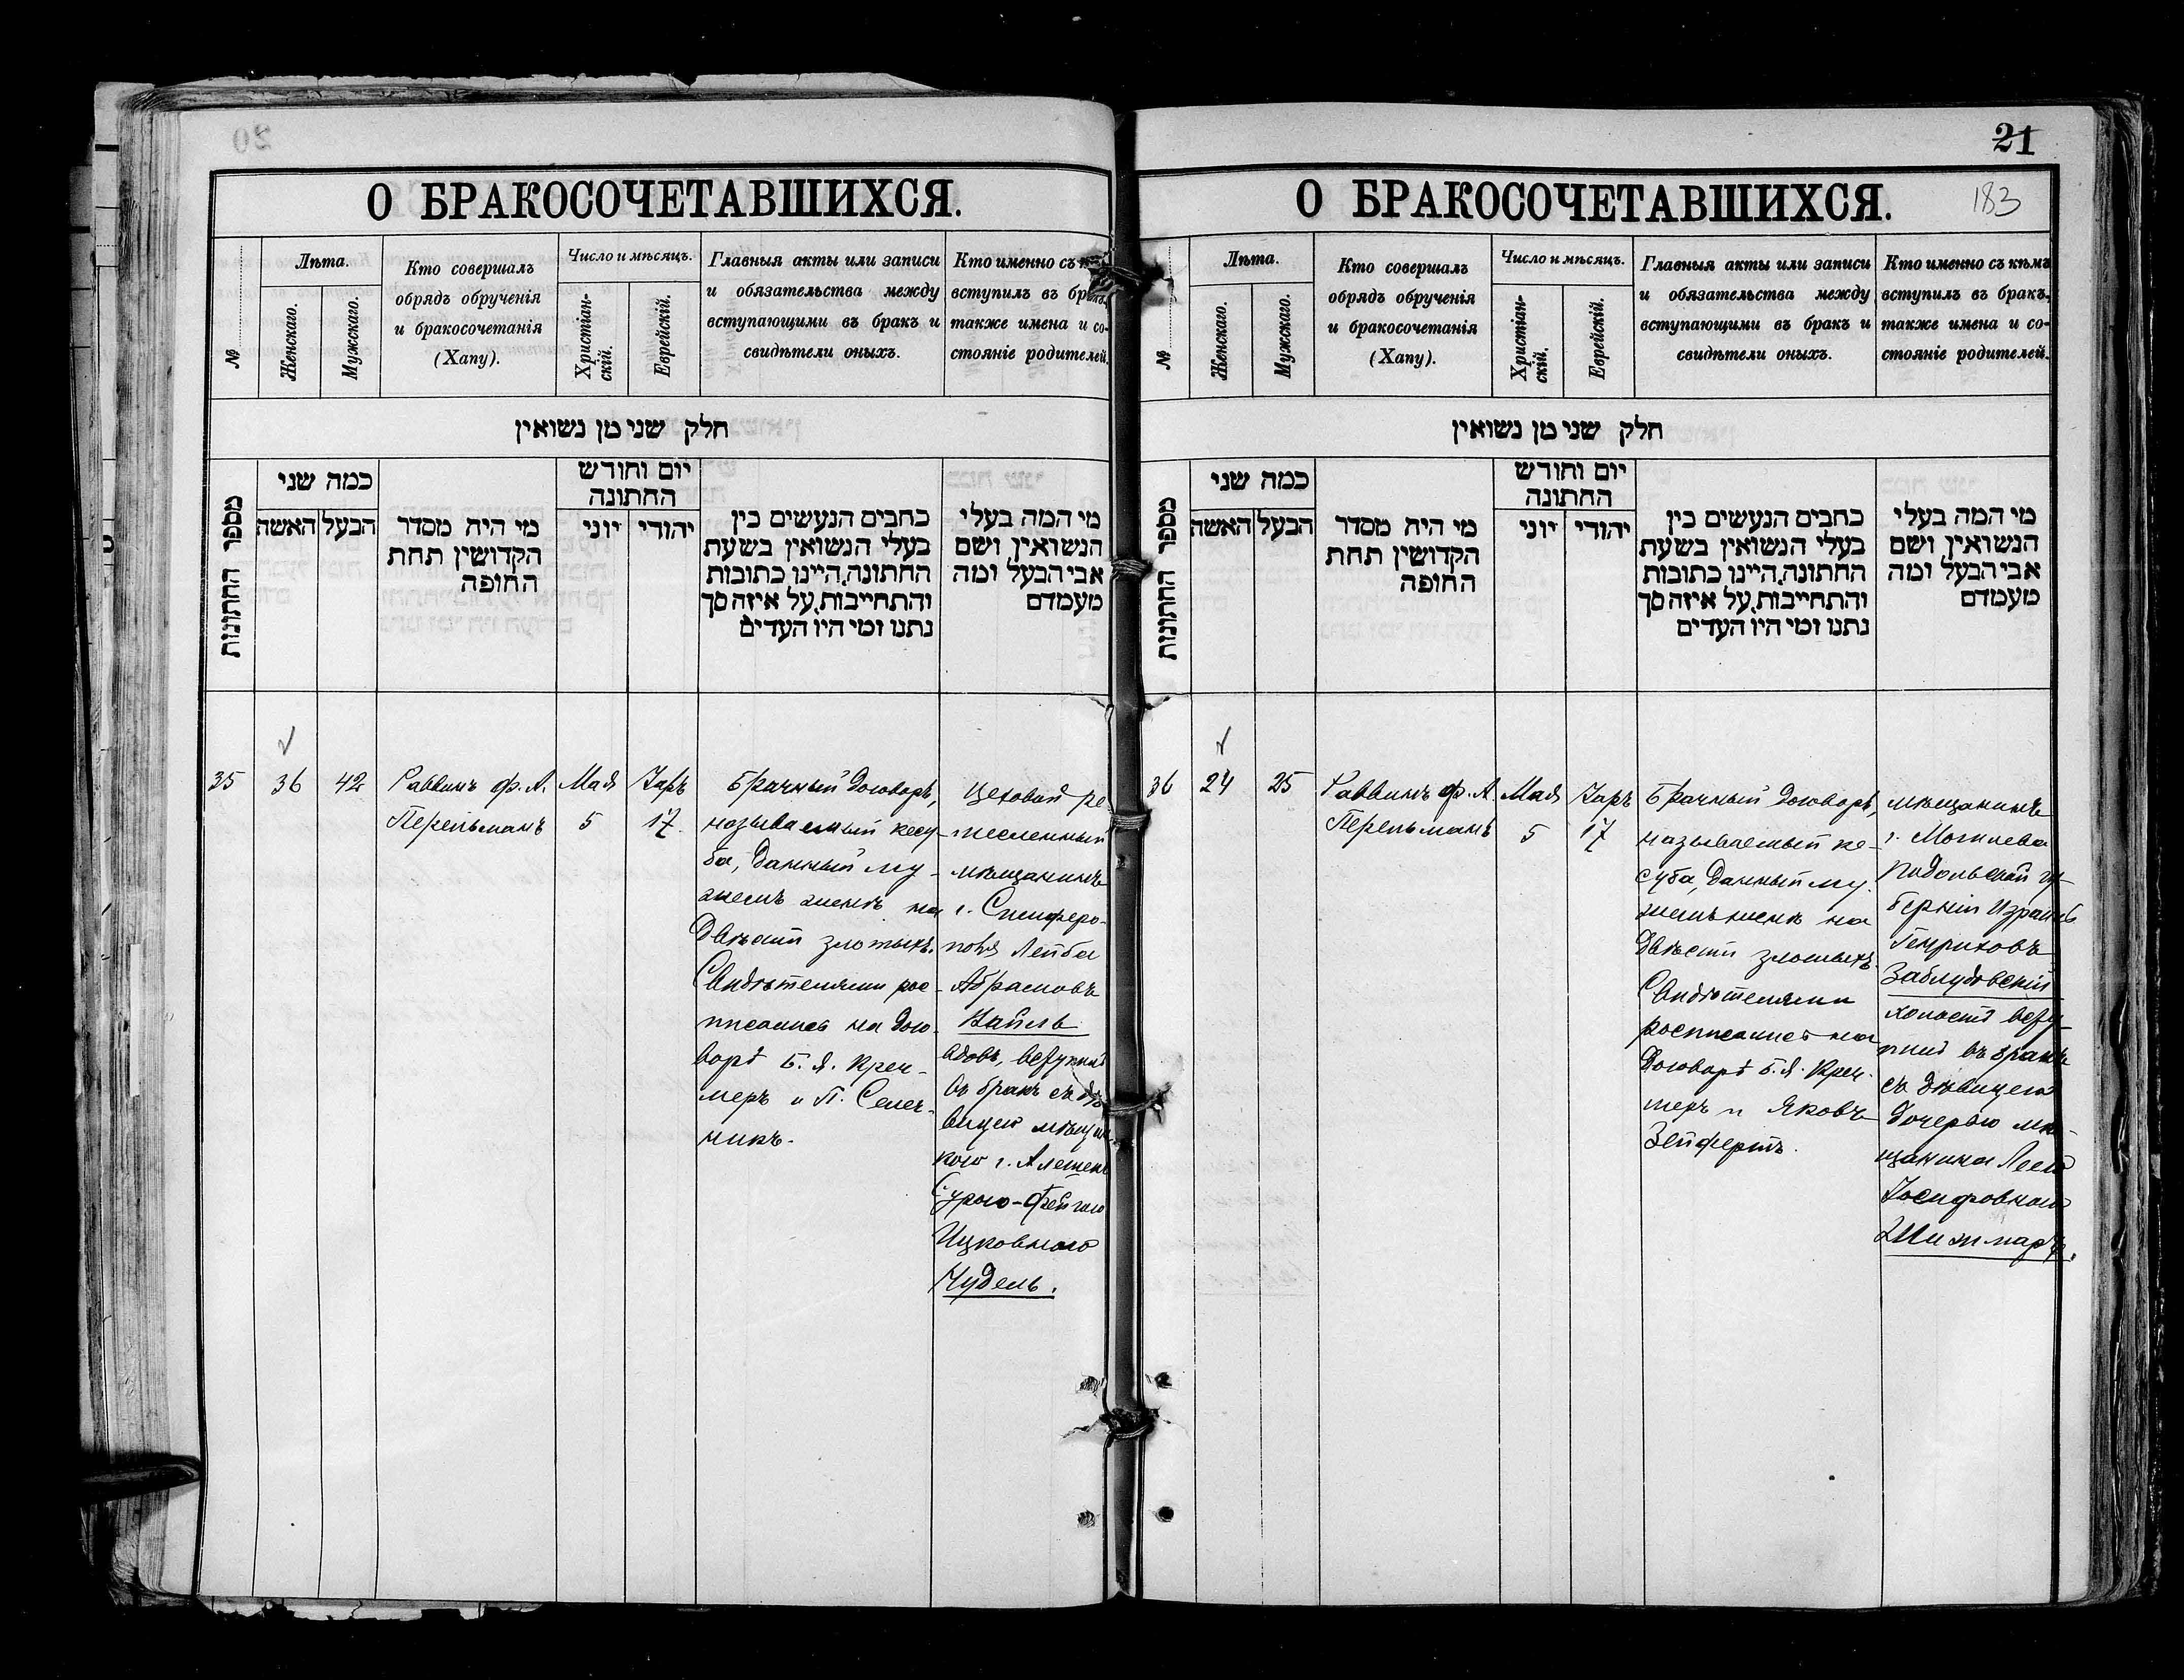 20
О БРАКОСОЧЕТАВШИХСЯ.
№
Лѣта.
Женскаго.
Мужскаго.
Кто совершалъ
обрядъ обрученія
и бракосочетанія
(Хапу).
Число и мѣсяцъ.
Христіан-
скій.
Еврейскій.
Главныя акты или записи
и обязательства между
вступающими въ бракъ и
свидѣтели оныхъ.
Кто именно съ
вступилъ въ бракъ,
также имена и со-
стояніе родителей.
חלק שני מן נשואין
מספר החתונות
כמה שני
הבעל
האשה
מי היה מסדר
הקדושין תחת
החופה
יום וחודש
החתונה
יוני
יהודי
כתבים הנעשים בין
בעלי הנשואין בשעת
החתונה, היינו כתובות
והתחייבות, על איזה סך
נתנו ומי היו העדים
מי המה בעלי
הנשואין ושם
אבי הבעל ומה
מעמדם
35
36
42
Раввинъ Ф. А.
Перельманъ
Мая
5
Іаръ
17.
Брачный договоръ,
называемый кесу-
ба, данный му-
жемъ женѣ на
двѣсти злотыхъ.
Свидѣтелями рос-
писались на дого-
ворѣ Б. Я. Креч-
меръ и П. Селеч-
никъ.
Цеховой ре-
месленный
мѣщанинъ
г. Симферо-
поля Лейба
Абрамовъ
Вайль
вдовъ, вступилъ
въ бракъ съ дѣ-
вицей мѣщан-
кою г. Алешекъ
Сурою-Фейгою
Ицковною
Нудель.
21
О БРАКОСОЧЕТАВШИХСЯ.
183
№
Лѣта.
Женскаго.
Мужскаго.
Кто совершалъ
обрядъ обрученія
и бракосочетанія
(Хапу).
Число и мѣсяцъ.
Христіан-
скій.
Еврейскій.
Главныя акты или записи
и обязательства между
вступающими въ бракъ и
свидѣтели оныхъ.
Кто именно съ кѣмъ
вступилъ въ бракъ,
также имена и со-
стояніе родителей.
חלק שני מן נשואין
מספר החתונות
כמה שני
הבעל
האשה
מי היה מסדר
הקדושין תחת
החופה
יום וחודש
החתונה
יוני
יהודי
כתבים הנעשים בין
בעלי הנשואין בשעת
החתונה, היינו כתובות
והתחייבות, על איזה סך
נתנו ומי היו העדים
מי המה בעלי
הנשואין ושם
אבי הבעל ומה
מעמדם
36
24
25
Раввинъ Ф. А.
Перельманъ
Мая
5
Іаръ
17
Брачный договоръ,
называемый ке-
суба, данный му-
жемъ женѣ на
двѣсти злотыхъ.
Свидѣтелями
росписались на
договорѣ Б. Я. Креч-
меръ и Яковъ
Зейфертъ.
мѣщанинъ
г. Могилева
Подольской гу-
берніи Израиль
Генриховъ
Заблудовскій
холостъ всту-
пилъ въ бракъ
съ дѣвицею
дочерью мѣ-
щанина Леею
Іосифовною